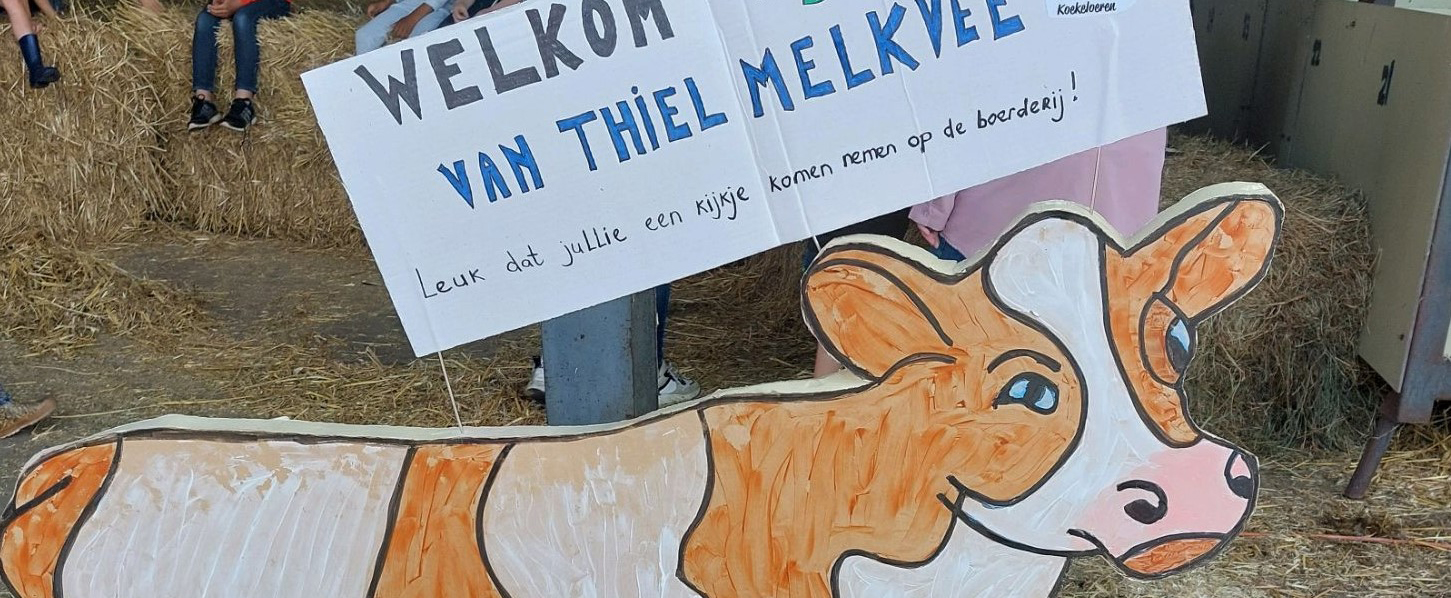 WELKOM
VAN THIEL MELKVEE
Koekeloeren
Leuk dat jullie een kijkje komen nemen op de boerderij!
21